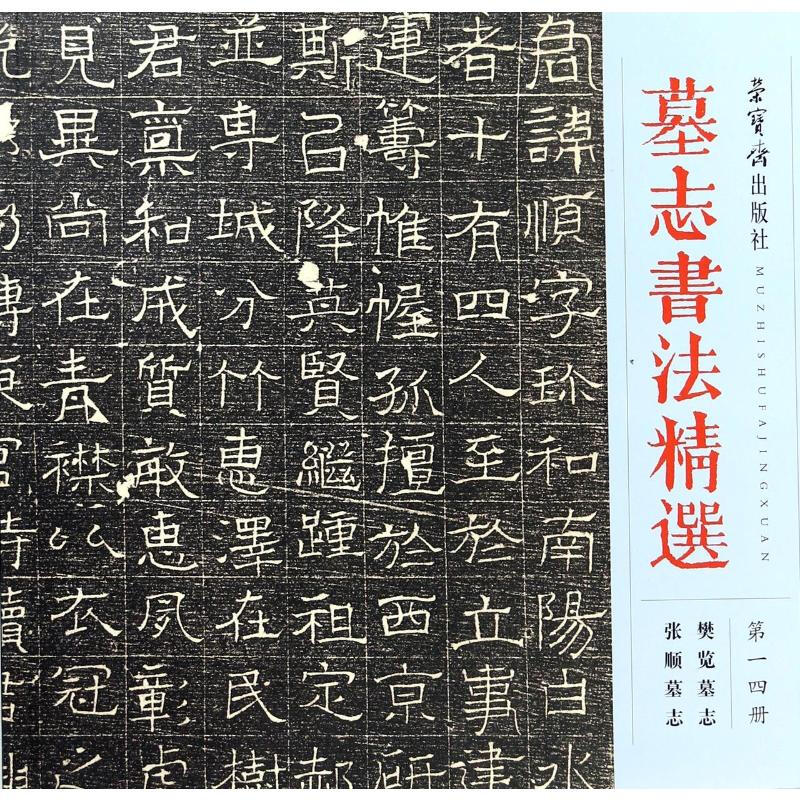 荣寶齋出版社
MUZHISHUFAJINGXUAN
墓志書法精選
第一四册
樊览墓志
张顺墓志
君諱順字珎和南陽白水
者十有四人至於立事建
運籌帷幄孤擅於西京研
斯㠯降英賢継踵祖定郝
並專城分竹惠澤在民樹
君稟和成質敏惠夙彰
見異尚在青襟以衣冠之